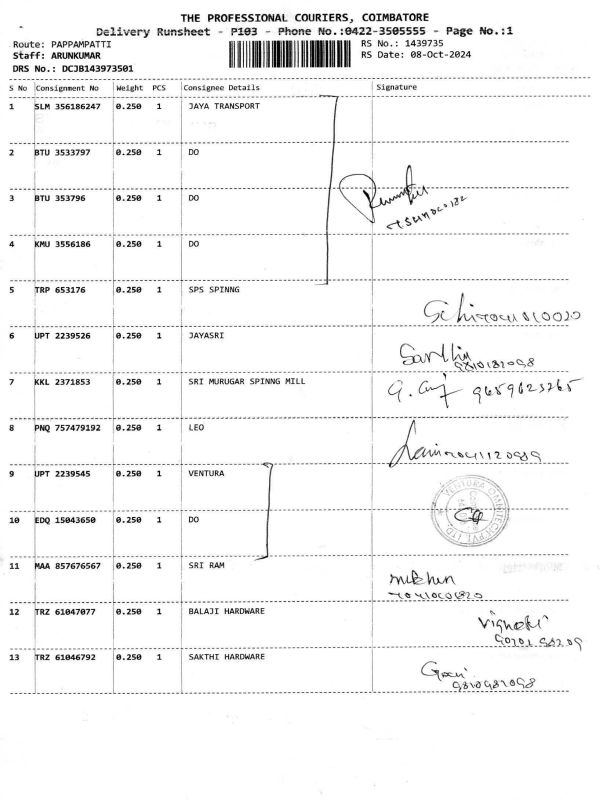 THE PROFESSIONAL COURIERS, COIMBATORE
Delivery Runsheet - P103 - Phone No.:0422-3505555 - Page No.:1
Route: PAPPAMPATTI
RS No.: 1439735
Staff: ARUNKUMAR
RS Date: 08-Oct-2024
DRS No.: DCJB143973501
S No Consignment No Weight PCS Consignee Details Signature
1 SLM 356186247 0.250 1 JAYA TRANSPORT
2 BTU 3533797 0.250 1 DO
3 BTU 353796 0.250 1 DO
4 KMU 3556186 0.250 1 DO
5 TRP 653176 0.250 1 SPS SPINNG
6 UPT 2239526 0.250 1 JAYASRI
7 KKL 2371853 0.250 1 SRI MURUGAR SPINNG MILL
9659623765
8 PNQ 757479192 0.250 1 LEO
9 UPT 2239545 0.250 1 VENTURA
VENTURA OMNITECH PVT LTD
10 EDQ 15043650 0.250 1 DO
11 MAA 857676567 0.250 1 SRI RAM
12 TRZ 61047077 0.250 1 BALAJI HARDWARE
13 TRZ 61046792 0.250 1 SAKTHI HARDWARE